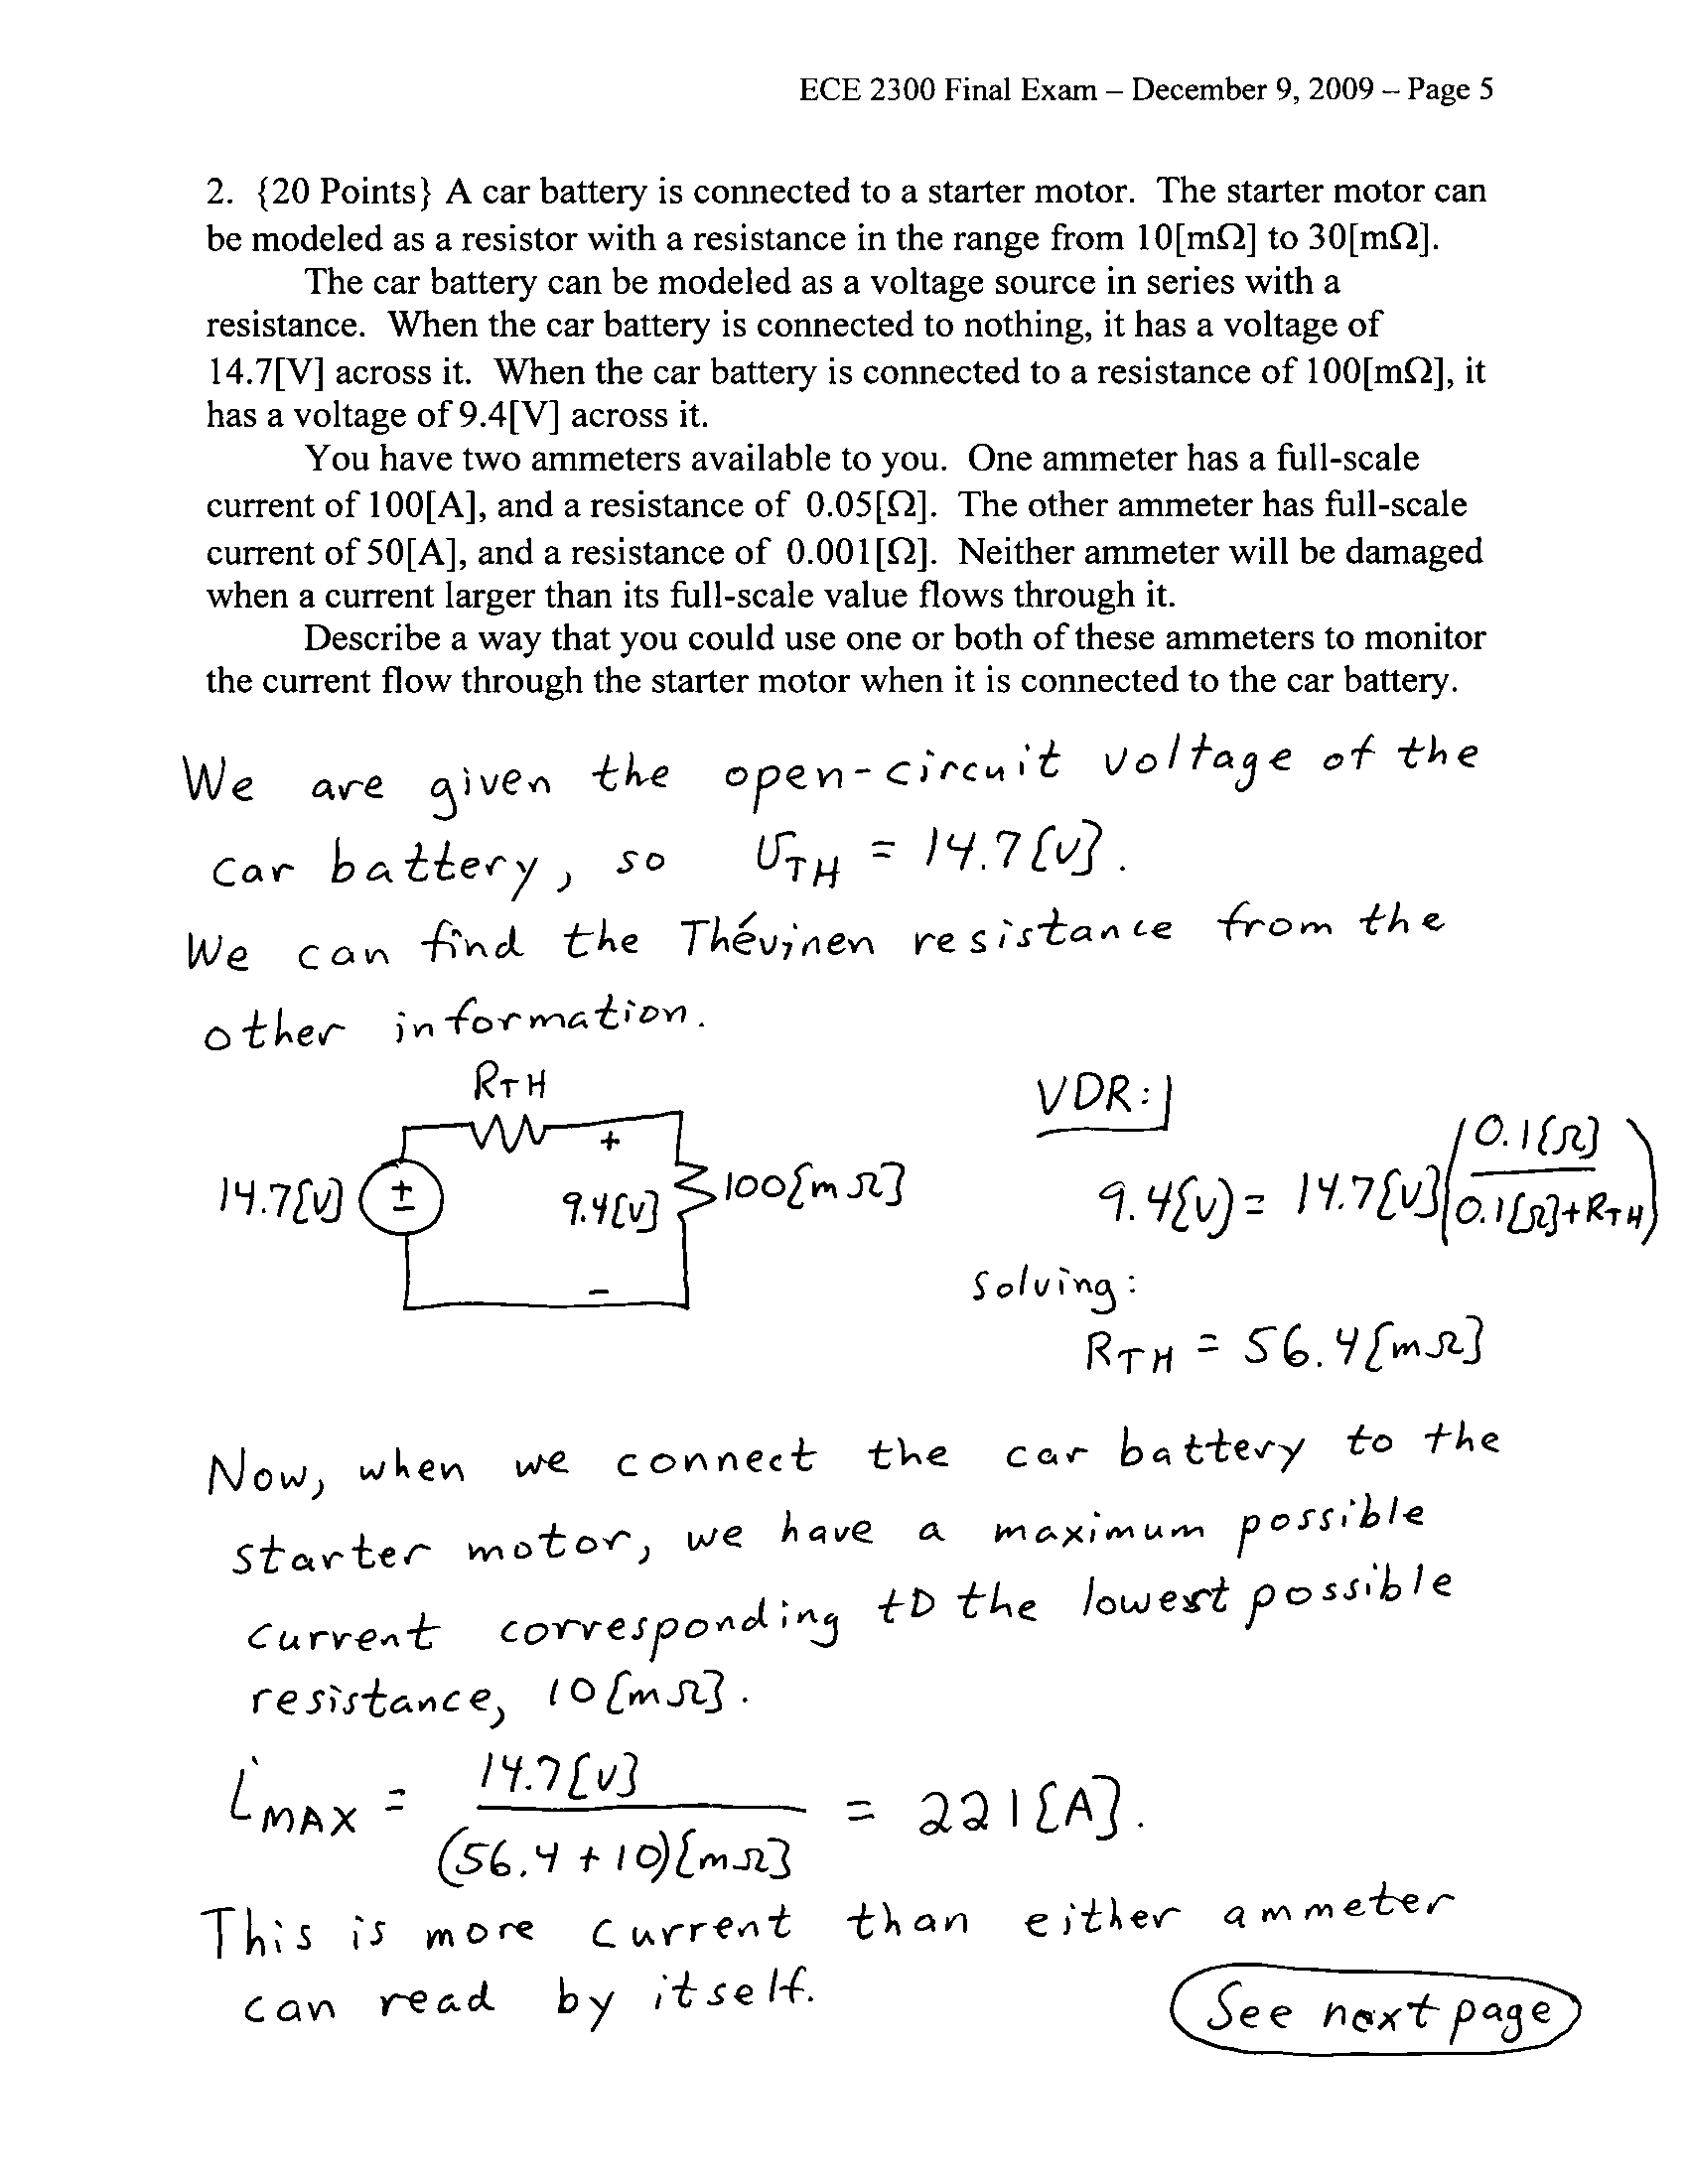 ECE 2300 Final Exam – December 9, 2009 – Page 5
2. {20 Points} A car battery is connected to a starter motor. The starter motor can
be modeled as a resistor with a resistance in the range from 10[mΩ] to 30[mΩ].
The car battery can be modeled as a voltage source in series with a
resistance. When the car battery is connected to nothing, it has a voltage of
14.7[V] across it. When the car battery is connected to a resistance of 100[mΩ], it
has a voltage of 9.4[V] across it.
You have two ammeters available to you. One ammeter has a full-scale
current of 100[A], and a resistance of 0.05[Ω]. The other ammeter has full-scale
current of 50[A], and a resistance of 0.001[Ω]. Neither ammeter will be damaged
when a current larger than its full-scale value flows through it.
Describe a way that you could use one or both of these ammeters to monitor
the current flow through the starter motor when it is connected to the car battery.
We are given the open-circuit voltage of the
car battery, so v_TH = 14.7[V].
We can find the Thévinen resistance from the
other information.
R_TH
14.7[V] ± + 9.4[V] − 100[mΩ]
VDR:
9.4[V] = 14.7[V] (0.1[Ω] / 0.1[Ω]+R_TH)
solving:
R_TH = 56.4[mΩ]
Now, when we connect the car battery to the
starter motor, we have a maximum possible
current corresponding to the lowest possible
resistance, 10[mΩ].
i_MAX = 14.7[V] / (56.4+10)[mΩ] = 221[A].
This is more current than either ammeter
can read by itself.
See next page